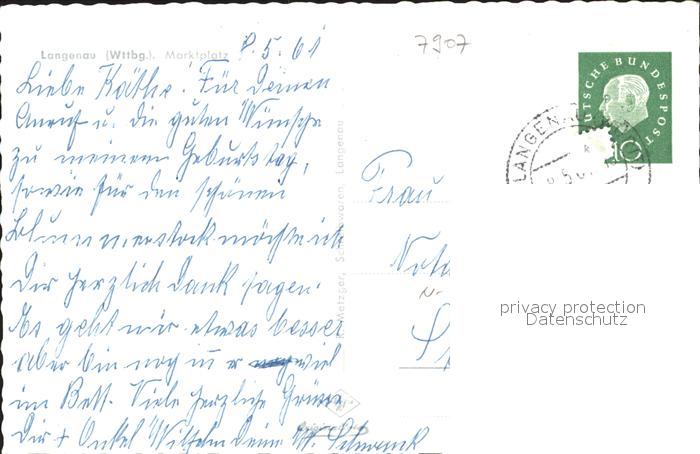 Langenau (Wttbg.). Marktplatz
8.5.61
7907
Liebe Käthe! Für Deinen
Anruf u. die guten Wünsche
zu meinem Geburtstag,
sowie für den schönen
Blumenstock möchte ich
Dir herzlich Dank sagen.
Es geht mir etwas besser
aber bin noch viel
im Bett. Viele herzliche Grüsse
Dir + Onkel Wilhelm Deine M. Schwenk
Metzger, Schreibwaren, Langenau
Frau
DEUTSCHE BUNDESPOST
10
LANGENAU
privacy protection
Datenschutz